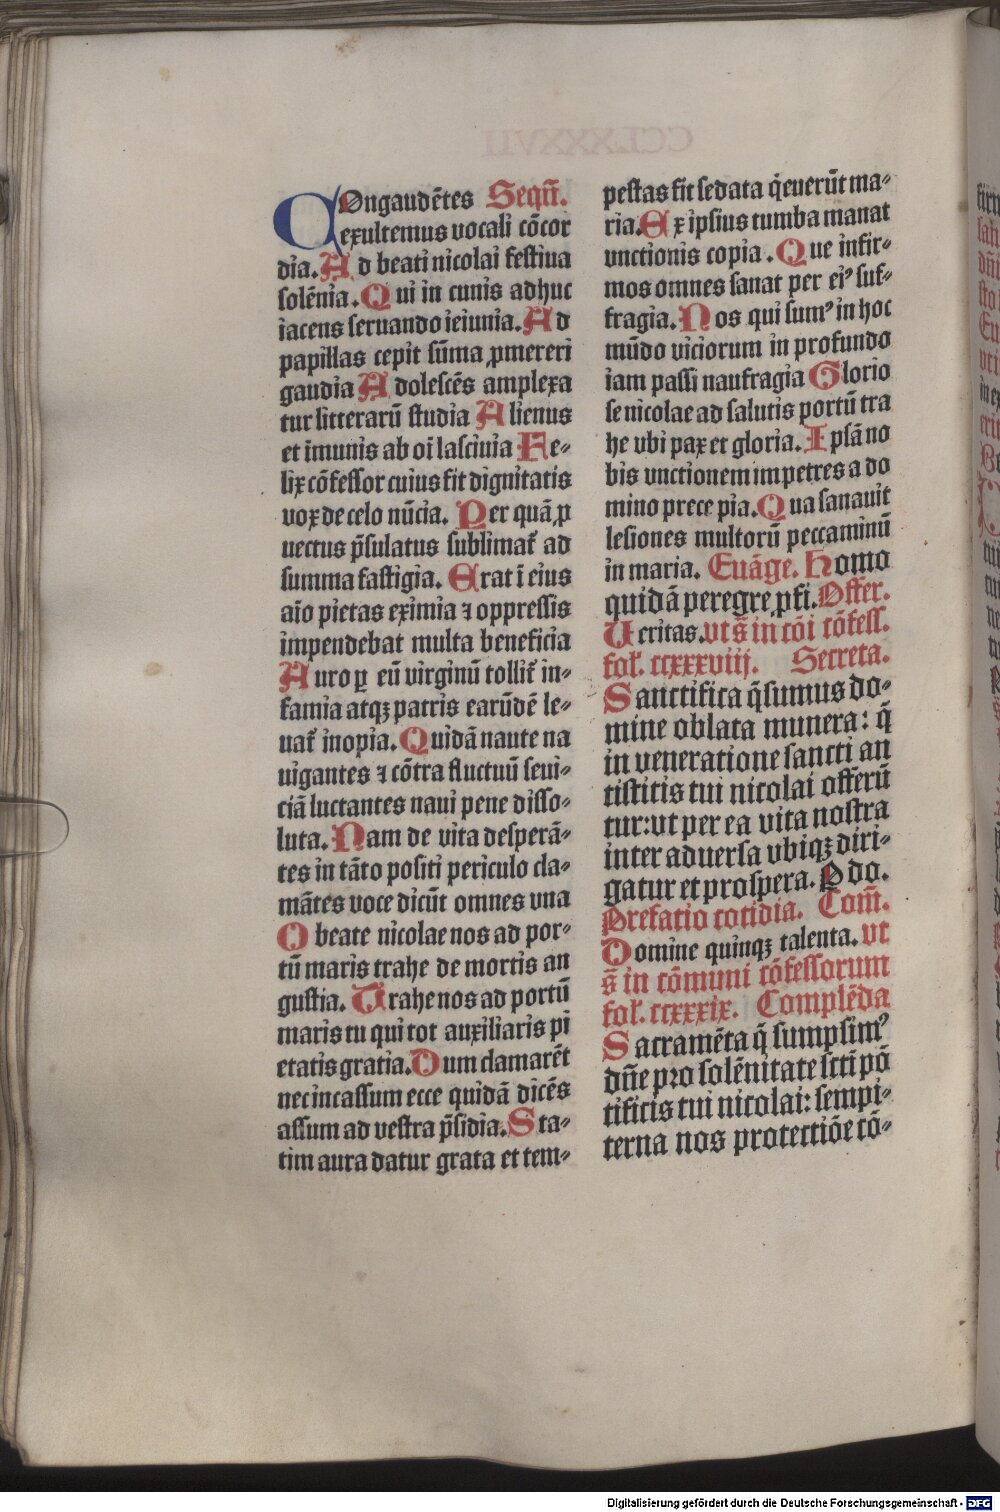 COngaudētes Seqn̄.
exultemus vocali cōcor
dia. Ad beati nicolai festiua
solēnia. Qui in cunis adhuc
iacens seruando ieiunia. Ad
papillas cepit sūma ꝓmereri
gaudia Adolescēs amplexa
tur litterarū studia Alienus
et īmunis ab oī lasciuia Fe-
lix cōfessor cuius fit dignitatis
vox de celo nūcia. Per quā ꝓ
uectus p̄sulatus sublimat᷑ ad
summa fastigia. Erat ī eius
aīo pietas eximia ⁊ oppressis
impendebat multa beneficia
Auro ꝑ eū virginū tollit᷑ in-
famia atqꝫ patris earūdē le-
uat᷑ inopia. Quidā naute na
uigantes ⁊ cōtra fluctuū seui-
ciā luctantes naui pene disso-
luta. Nam de vita desperā-
tes in tāto positi periculo cla-
mātes voce dicūt omnes vna
O beate nicolae nos ad por-
tū maris trahe de mortis an
gustia. Trahe nos ad portū
maris tu qui tot auxiliaris pi
etatis gratia. Dum clamarēt
nec incassum ecce quidā dicēs
assum ad vestra p̄sidia. Sta-
tim aura datur grata et tem-
pestas fit sedata q̇euerūt ma-
ria. Ex ipsius tumba manat
vnctionis copia. Que infir-
mos omnes sanat per eiꝰ suf-
fragia. Nos qui sumꝰ in hoc
mūdo viciorum in profundo
iam passi naufragia Glorio
se nicolae ad salutis portū tra
he vbi pax et gloria. Ipsā no
bis vnctionem impetres a do
mino prece pia. Qua sanauit
lesiones multorū peccaminū
in maria. Euāge. Homo
quidā peregre ꝓfi. Offer.
Veritas. vt s̄ in cōi cōfess.
fol᷑. ccxxxviij. Secreta.
Sanctifica q̄sumus do-
mine oblata munera: q̄
in veneratione sancti an
tistitis tui nicolai offerū
tur: vt per ea vita nostra
inter aduersa vbiqꝫ diri-
gatur et prospera. P do.
Prefatio cotidia. Com̄.
Domine quinqꝫ talenta. vt
s̄ in cōmuni cōfessorum
fol᷑. ccxxxix. Complēda
Sacramēta q̄ sumpsimꝰ
dn̄e pro solēnitate scti pō
tificis tui nicolai: sempi-
terna nos protectiōe cō-
Digitalisierung gefördert durch die Deutsche Forschungsgemeinschaft - DFG